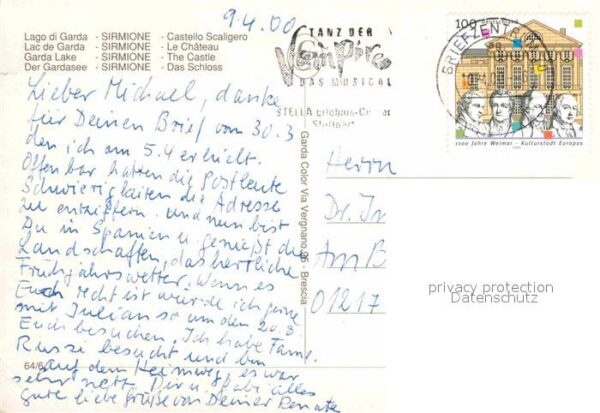 9.4.00
Lago di Garda - SIRMIONE - Castello Scaligero
Lac de Garda - SIRMIONE - Le Château
Garda Lake - SIRMIONE - The Castle
Der Gardasee - SIRMIONE - Das Schloss
Lieber Michael, danke
für Deinen Brief vom 30.3
den ich am 5.4 erhielt.
Offenbar hatten die Postleute
Schwierigkeiten die Adresse
zu entziffern. und nun bist
Du in Spanien u. genießt die
Landschaften, das herrliche
Frühjahrswetter. Wenn es
Euch recht ist würde ich gerne
mit Julian so um den 20.8.
Euch besuchen. Ich habe Fam.
besucht und bin
auf dem Heimweg, es war
sehr nett. Dir u. Gabi alles
gute liebe Grüße von Deiner Renate
64/6
Garda Color Via Vergnano 95 - Brescia
TANZ DER
Vampire
DAS MUSICAL
STELLA Erlebnis-Center
Stuttgart
BRIEFZENTRUM
100
1100 Jahre Weimar - Kulturstadt Europas
Herrn
Dr.
Am B
01217
privacy protection
Datenschutz